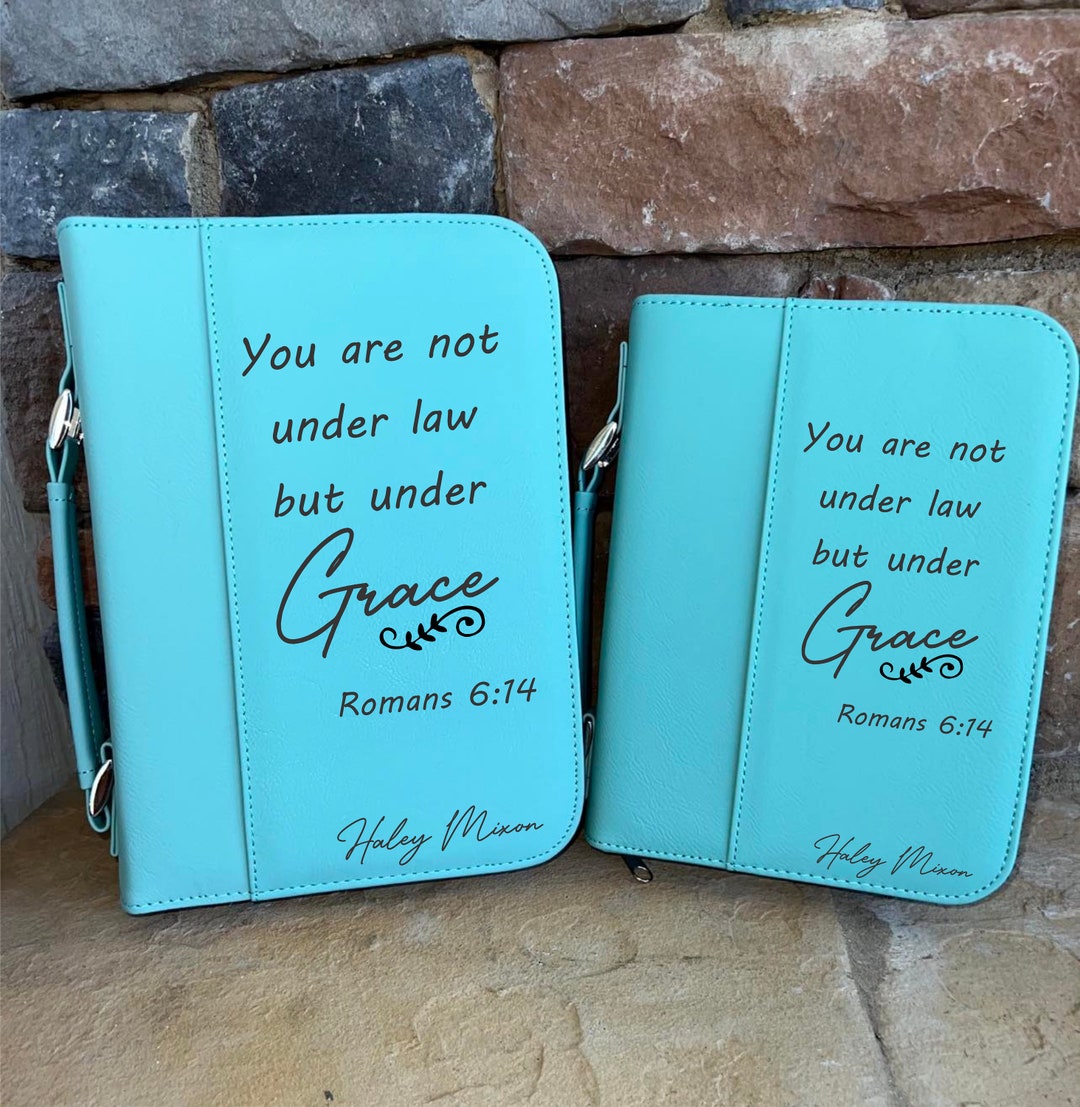 You are not
under law
but under
Grace
Romans 6:14
Haley Mixon
You are not
under law
but under
Grace
Romans 6:14
Haley Mixon